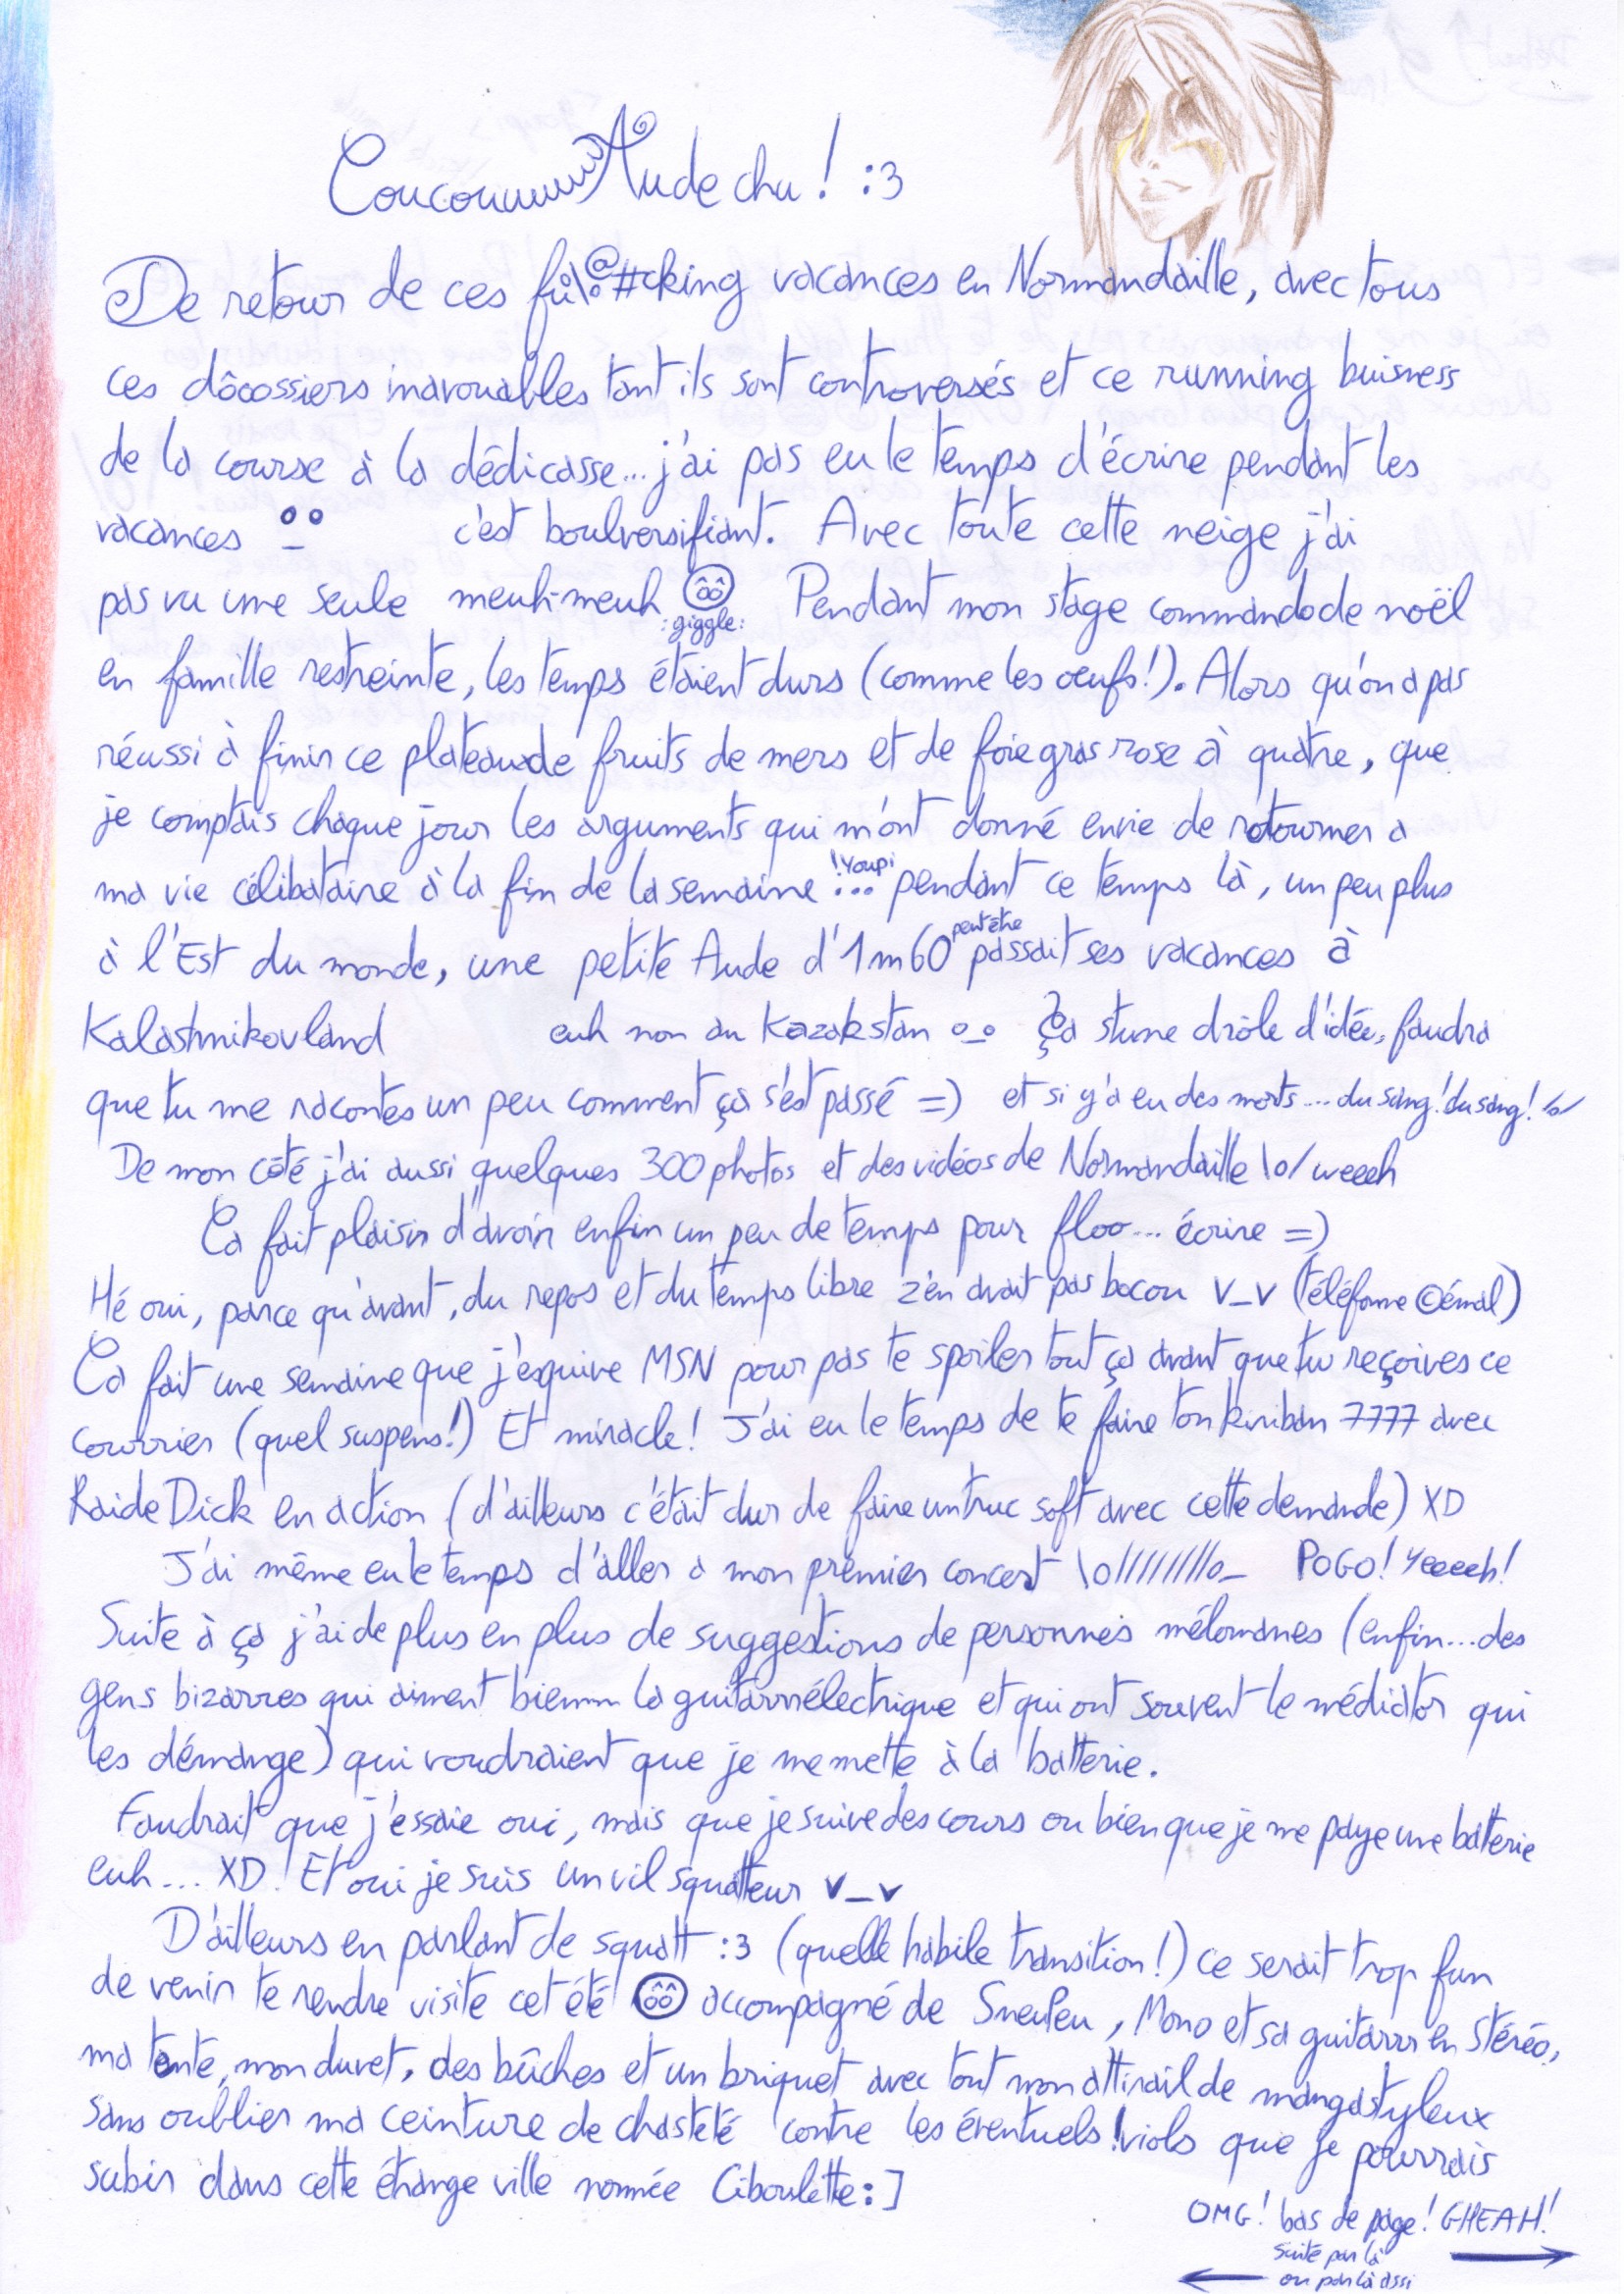 Coucouuuuu Aude chu ! :3
De retour de ces fu\@#cking vacances en Normandaille, avec tous
ces dôcossiers inavouables tant ils sont controversés et ce running buisness
de la course à la dédicasse... j'ai pas eu le temps d'écrire pendant les
vacances °_° c'est boulversifiant. Avec toute cette neige j'ai
pas vu une seule meuh-meuh :giggle: Pendant mon stage commando de noël
en famille restreinte, les temps étaient durs (comme les oeufs!). Alors qu'on a pas
réussi à finir ce plateau de fruits de mers et de foie gras rose à quatre, que
je comptais chaque jour les arguments qui m'ont donné envie de retourner a
ma vie célibataire à la fin de la semaine !youpi ... pendant ce temps là, un peu plus
à l'Est du monde, une petite Aude d'1m60 peut être passait ses vacances à
Kalashnikovland euh non au Kazakstan o_o Ça stune drôle d'idée, faudra
que tu me racontes un peu comment ça s'est passé =) et si y'a eu des morts... du sang! du sang! \o/
De mon côté j'ai aussi quelques 300 photos et des vidéos de Normandaille \o/ weeeh
Ca fait plaisir d'avoir enfin un peu de temps pour floo... écrire =)
Hé oui, parce qu'avant, du repos et du temps libre z'en avait pas bocou v_v (téléfone ©émal)
Ca fait une semaine que j'esquive MSN pour pas te spoiler tout ça avant que tu reçoives ce
courrier (quel suspens!) Et miracle! J'ai eu le temps de te faire ton kiriban 7777 avec
Raide Dick en action (d'ailleurs c'était dur de faire un truc soft avec cette demande) XD
J'ai même eu le temps d'aller a mon premier concert \o////////o_ POGO! Yeeeeh!
Suite à ça j'ai de plus en plus de suggestions de personnes mélomanes (enfin... des
gens bizarres qui aiment biennn la guitarrrélectrique et qui ont souvent le médiator qui
les démange) qui voudraient que je me mette à la batterie.
Faudrait que j'essaie oui, mais que je suive des cours ou bien que je me paye une batterie
euh... XD! Et oui je suis un vil squatteur v_v
D'ailleurs en parlant de squatt :3 (quelle habile transition!) ce serait trop fun
de venir te rendre visite cet été accompagné de SneuPeu, Mono et sa guitarrr en stéréo,
ma tente, mon duvet, des bûches et un briquet avec tout mon attirail de mangastyleux
sans oublier ma ceinture de chasteté contre les éventuels !viols que je pourrais
subir dans cette étrange ville nommée Ciboulette :]
OMG! bas de page! GHEAH!
suite par là
ou par là assi